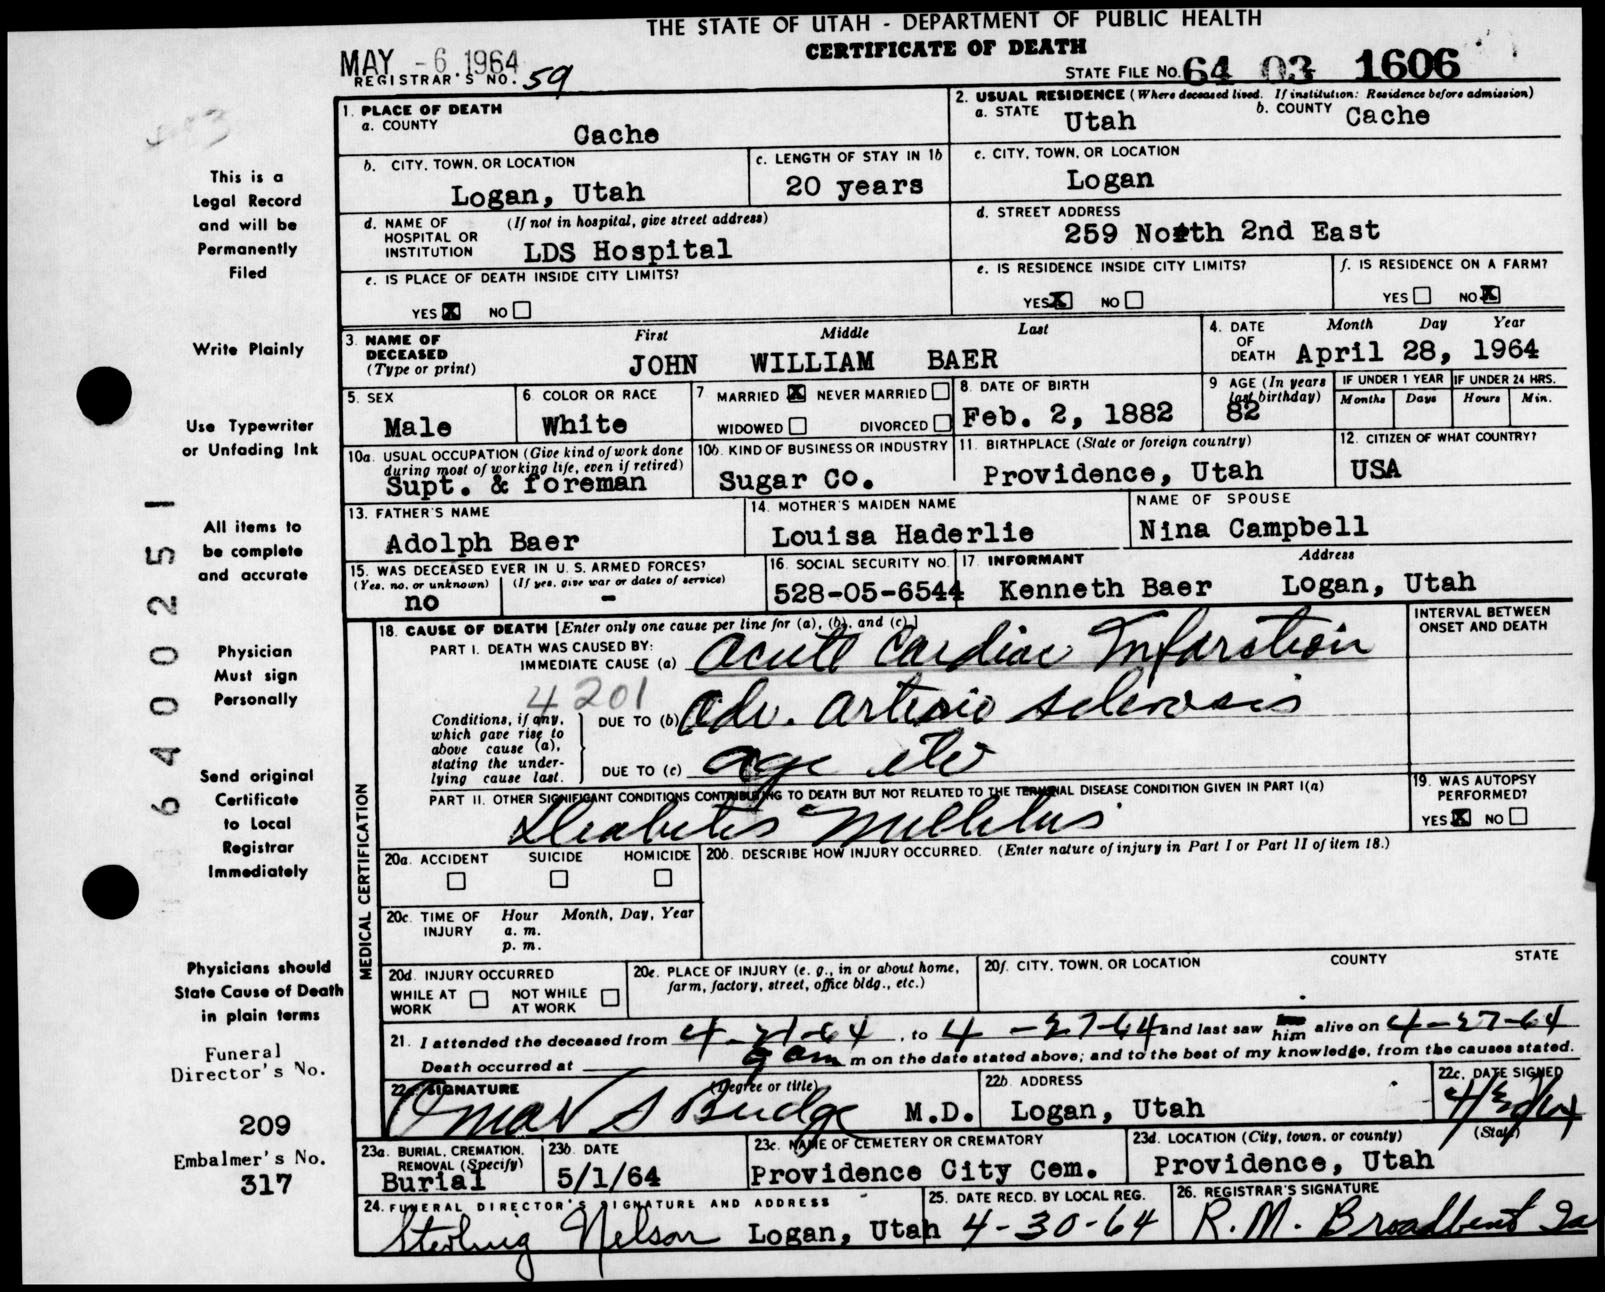 THE STATE OF UTAH - DEPARTMENT OF PUBLIC HEALTH
CERTIFICATE OF DEATH
MAY - 6 1964
REGISTRAR'S NO. 59
STATE FILE NO. 64 03 1606
1. PLACE OF DEATH
a. COUNTY
Cache
2. USUAL RESIDENCE (Where deceased lived. If institution: Residence before admission)
a. STATE Utah b. COUNTY Cache
b. CITY, TOWN, OR LOCATION
Logan, Utah
c. LENGTH OF STAY IN 1b
20 years
c. CITY, TOWN, OR LOCATION
Logan
d. NAME OF HOSPITAL OR INSTITUTION (If not in hospital, give street address)
LDS Hospital
d. STREET ADDRESS
259 North 2nd East
e. IS PLACE OF DEATH INSIDE CITY LIMITS?
YES X NO
e. IS RESIDENCE INSIDE CITY LIMITS?
YES X NO
f. IS RESIDENCE ON A FARM?
YES NO X
3. NAME OF DECEASED (Type or print)
First Middle Last
JOHN WILLIAM BAER
4. DATE OF DEATH Month Day Year
April 28, 1964
5. SEX
Male
6 COLOR OR RACE
White
7 MARRIED X NEVER MARRIED
WIDOWED DIVORCED
8. DATE OF BIRTH
Feb. 2, 1882
9 AGE (In years last birthday)
82
IF UNDER 1 YEAR IF UNDER 24 HRS.
Months Days Hours Min.
10a. USUAL OCCUPATION (Give kind of work done during most of working life, even if retired)
Supt. & foreman
10b. KIND OF BUSINESS OR INDUSTRY
Sugar Co.
11. BIRTHPLACE (State or foreign country)
Providence, Utah
12. CITIZEN OF WHAT COUNTRY?
USA
13. FATHER'S NAME
Adolph Baer
14. MOTHER'S MAIDEN NAME
Louisa Haderlie
NAME OF SPOUSE
Nina Campbell
15. WAS DECEASED EVER IN U. S. ARMED FORCES?
(Yes, no, or unknown) (If yes, give war or dates of service)
no -
16. SOCIAL SECURITY NO.
528-05-6544
17. INFORMANT Address
Kenneth Baer Logan, Utah
MEDICAL CERTIFICATION
18. CAUSE OF DEATH [Enter only one cause per line for (a), (b), and (c).]
INTERVAL BETWEEN ONSET AND DEATH
PART I. DEATH WAS CAUSED BY:
IMMEDIATE CAUSE (a) Acute Cardiac Infarction
4201
Conditions, if any, which gave rise to above cause (a), stating the underlying cause last.
DUE TO (b) Adv. Arterio sclerosis
DUE TO (c) age etc
PART II. OTHER SIGNIFICANT CONDITIONS CONTRIBUTING TO DEATH BUT NOT RELATED TO THE TERMINAL DISEASE CONDITION GIVEN IN PART I(a)
Diabetes Mellitus
19. WAS AUTOPSY PERFORMED?
YES X NO
20a. ACCIDENT SUICIDE HOMICIDE
20b. DESCRIBE HOW INJURY OCCURRED. (Enter nature of injury in Part I or Part II of item 18.)
20c. TIME OF INJURY Hour Month, Day, Year
a. m.
p. m.
20d. INJURY OCCURRED
WHILE AT WORK NOT WHILE AT WORK
20e. PLACE OF INJURY (e. g., in or about home, farm, factory, street, office bldg., etc.)
20f. CITY, TOWN, OR LOCATION COUNTY STATE
21. I attended the deceased from 4-21-64, to 4-27-64 and last saw him alive on 4-27-64
Death occurred at am m on the date stated above; and to the best of my knowledge, from the causes stated.
22a. SIGNATURE (Degree or title)
Omar S Budge M.D.
22b. ADDRESS
Logan, Utah
22c. DATE SIGNED
23a. BURIAL, CREMATION, REMOVAL (Specify)
Burial
23b. DATE
5/1/64
23c. NAME OF CEMETERY OR CREMATORY
Providence City Cem.
23d. LOCATION (City, town, or county) (State)
Providence, Utah
24. FUNERAL DIRECTOR'S SIGNATURE AND ADDRESS
Sterling Nelson Logan, Utah
25. DATE RECD. BY LOCAL REG.
4-30-64
26. REGISTRAR'S SIGNATURE
R. M. Broadbent
This is a
Legal Record
and will be
Permanently
Filed
Write Plainly
Use Typewriter
or Unfading Ink
All items to
be complete
and accurate
Physician
Must sign
Personally
Send original
Certificate
to Local
Registrar
Immediately
Physicians should
State Cause of Death
in plain terms
Funeral
Director's No.
209
Embalmer's No.
317
64000251